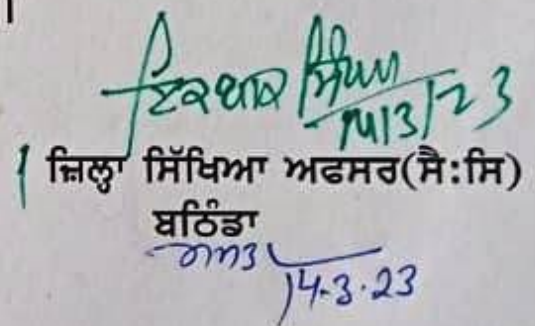 ਇਕਬਾਲ ਸਿੰਘ
14/3/23
ਜ਼ਿਲ੍ਹਾ ਸਿੱਖਿਆ ਅਫਸਰ(ਸੈ:ਸਿ)
ਬਠਿੰਡਾ
14.3.23